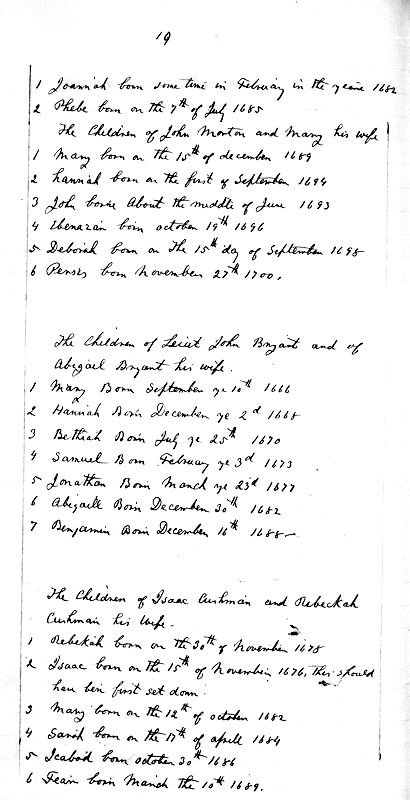 19
1 Joannah born some time in February in the yeare 1682
2 Phebe born on the 7th of July 1685
The Children of John Morton and Mary his wife
1 Mary born on the 15th of december 1689
2 hannah born on the first of September 1694
3 John borne About the middle of June 1693
4 Ebenazar born october 19th 1696
5 Deborah born on The 15th day of September 1698
6 born November 27th 1700.
The Children of Leiet John Bryant and of
Abigail Bryant his wife.
1 Mary Born September ye 10th 1666
2 Hannah Born December ye 2d 1668
3 Bethiah Born July ye 25th 1670
4 Samuel Born February ye 3d 1673
5 Jonathan Born March ye 23d 1677
6 Abigaill Born December 30th 1682
7 Benjamin Born December 16th 1688—
The Children of Isaac Cushman and Rebeckah
Cushman his Wife.
1 Rebekah born on the 30th of November 1678
2 Isaac born on the 15th of November 1676, this should
han ben first set down
3 Mary born on the 12th of october 1682
4 Sarah born on the 17th of aprill 1684
5 Icabod born october 30th 1686
6 Fear born March the 10th 1689.